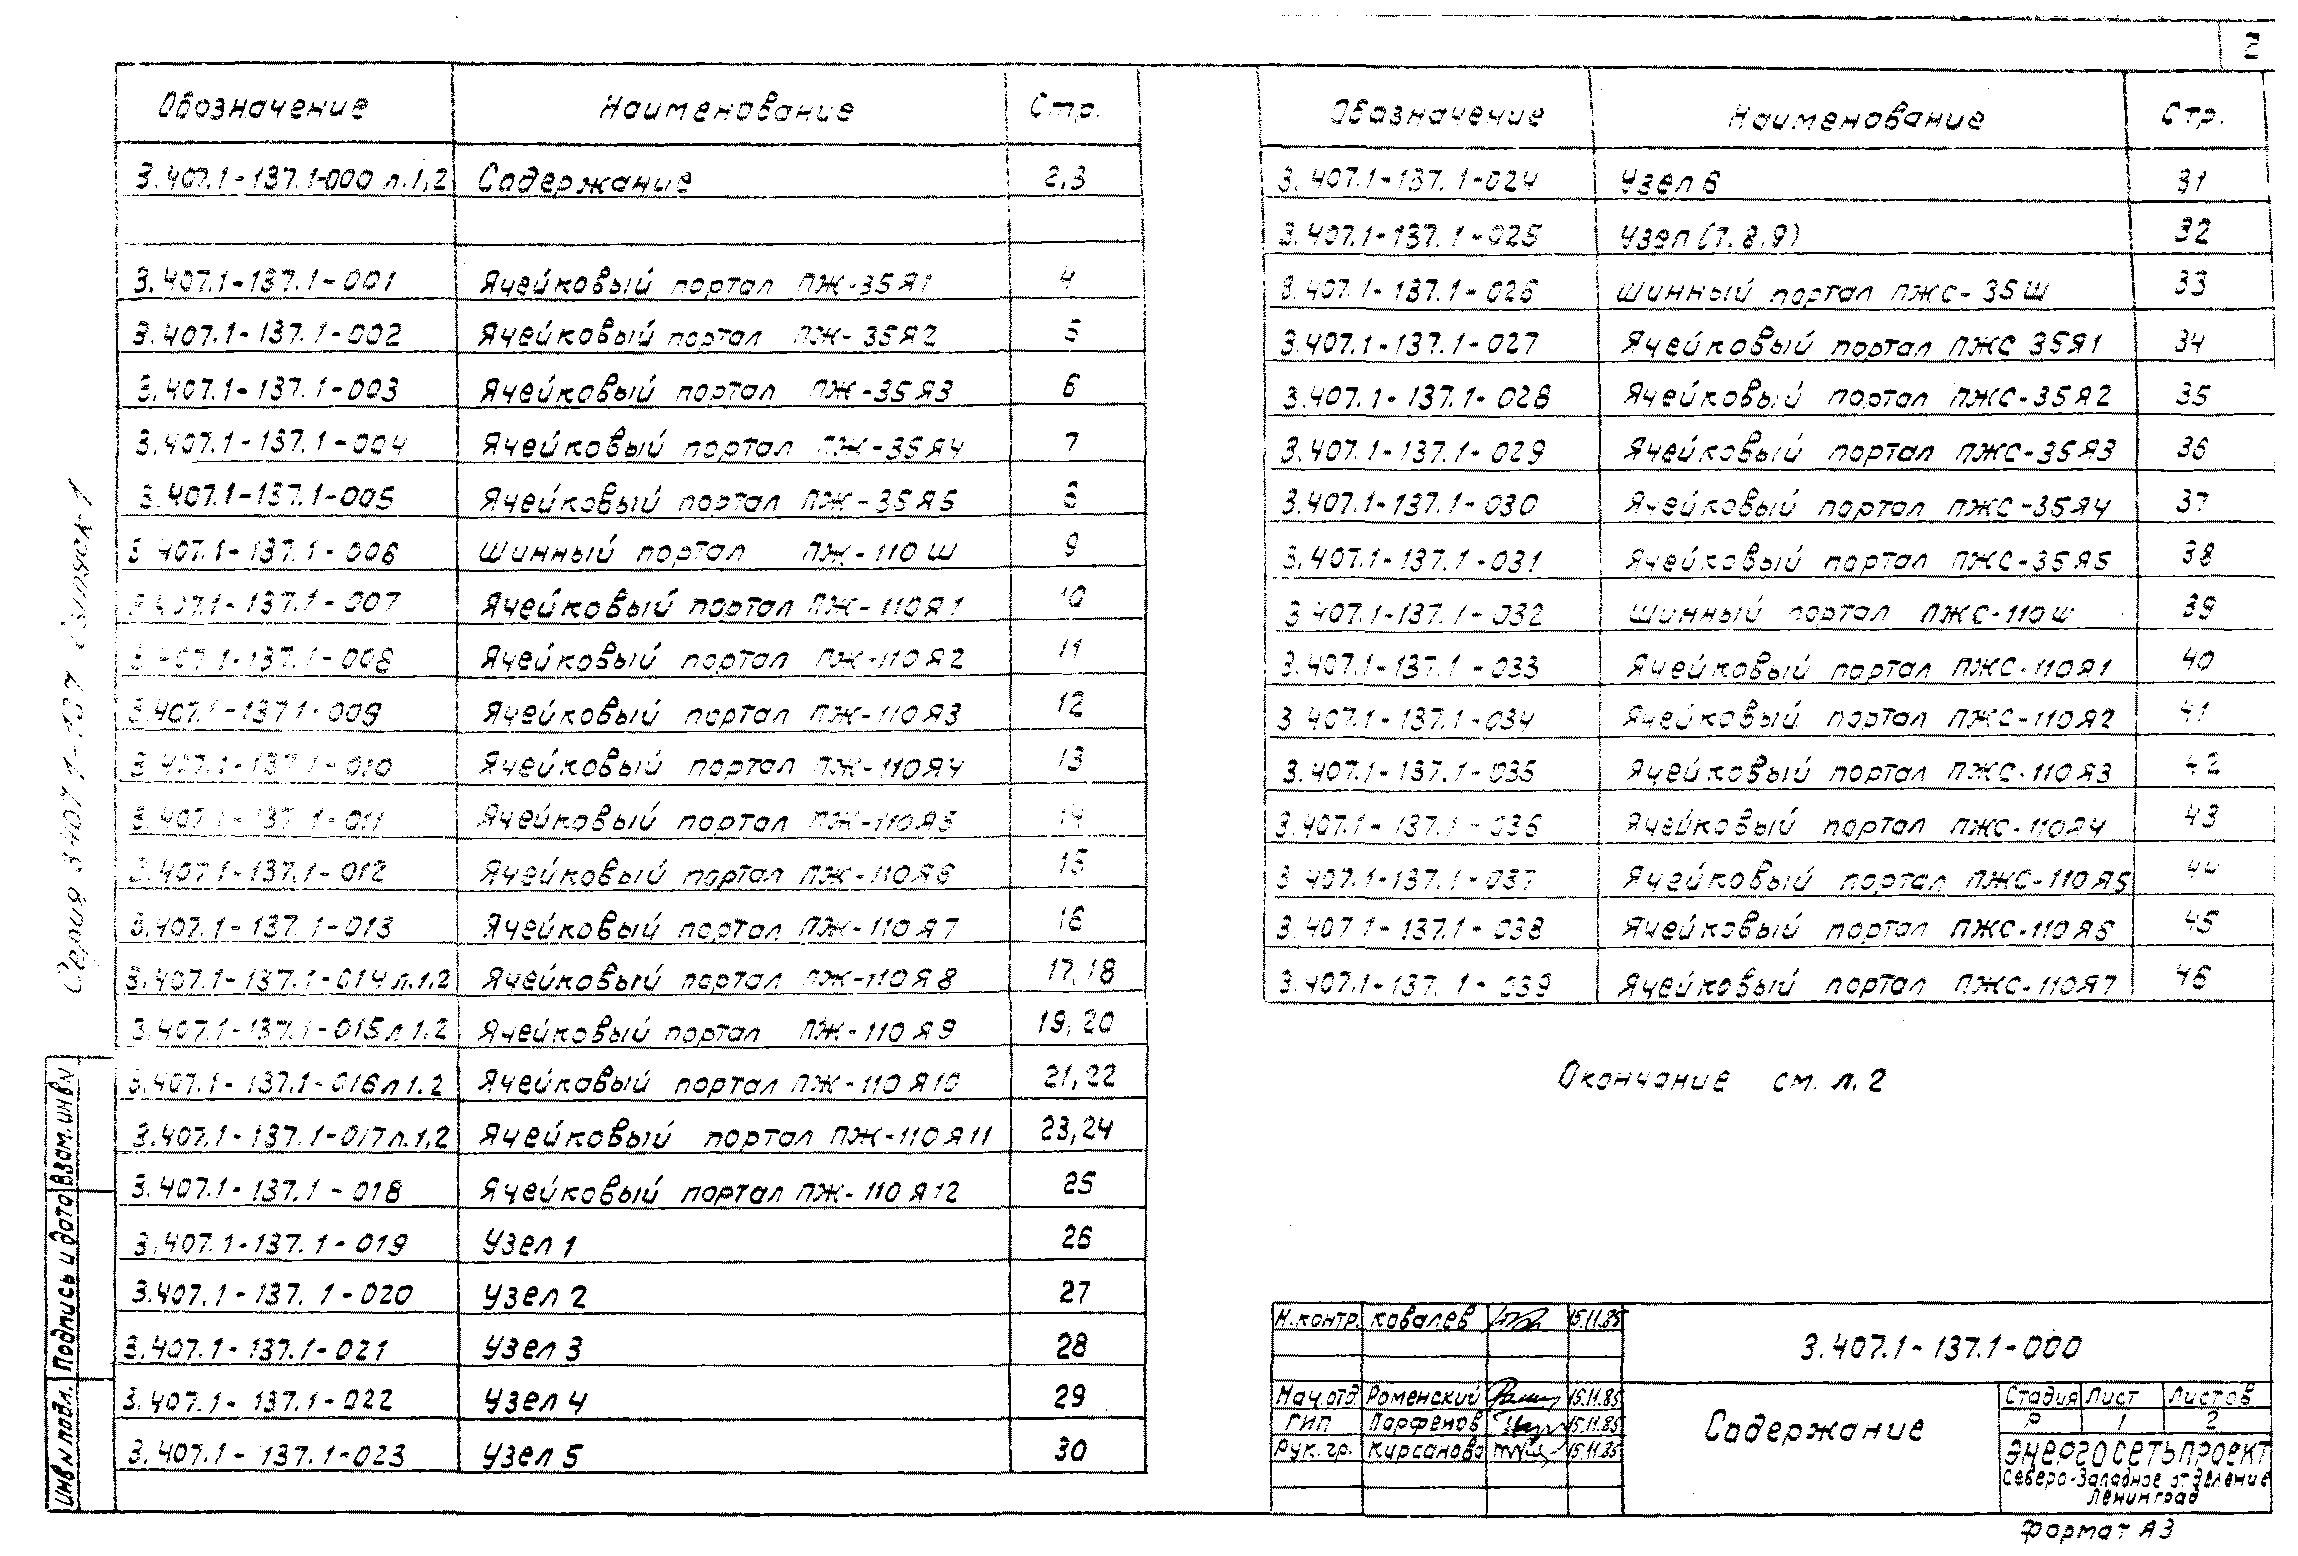 2
Обозначение Наименование Стр.
3.407.1-137.1-000 л.1,2 Содержание 2,3
3.407.1-137.1-001 Ячейковый портал ПЖ-35Я1 4
3.407.1-137.1-002 Ячейковый портал ПЖ-35Я2 5
3.407.1-137.1-003 Ячейковый портал ПЖ-35Я3 6
3.407.1-137.1-004 Ячейковый портал ПЖ-35Я4 7
3.407.1-137.1-005 Ячейковый портал ПЖ-35Я5 8
3.407.1-137.1-006 Шинный портал ПЖ-110Ш 9
3.407.1-137.1-007 Ячейковый портал ПЖ-110Я1 10
3.407.1-137.1-008 Ячейковый портал ПЖ-110Я2 11
3.407.1-137.1-009 Ячейковый портал ПЖ-110Я3 12
3.407.1-137.1-010 Ячейковый портал ПЖ-110Я4 13
3.407.1-137.1-011 Ячейковый портал ПЖ-110Я5 14
3.407.1-137.1-012 Ячейковый портал ПЖ-110Я6 15
3.407.1-137.1-013 Ячейковый портал ПЖ-110Я7 16
3.407.1-137.1-014 л.1,2 Ячейковый портал ПЖ-110Я8 17,18
3.407.1-137.1-015 л.1,2 Ячейковый портал ПЖ-110Я9 19,20
3.407.1-137.1-016 л.1,2 Ячейковый портал ПЖ-110Я10 21,22
3.407.1-137.1-017 л.1,2 Ячейковый портал ПЖ-110Я11 23,24
3.407.1-137.1-018 Ячейковый портал ПЖ-110Я12 25
3.407.1-137.1-019 Узел 1 26
3.407.1-137.1-020 Узел 2 27
3.407.1-137.1-021 Узел 3 28
3.407.1-137.1-022 Узел 4 29
3.407.1-137.1-023 Узел 5 30
Обозначение Наименование Стр.
3.407.1-137.1-024 Узел 6 31
3.407.1-137.1-025 Узел (7,8,9) 32
3.407.1-137.1-026 Шинный портал ПЖС-35Ш 33
3.407.1-137.1-027 Ячейковый портал ПЖС 35Я1 34
3.407.1-137.1-028 Ячейковый портал ПЖС-35Я2 35
3.407.1-137.1-029 Ячейковый портал ПЖС-35Я3 36
3.407.1-137.1-030 Ячейковый портал ПЖС-35Я4 37
3.407.1-137.1-031 Ячейковый портал ПЖС-35Я5 38
3.407.1-137.1-032 Шинный портал ПЖС-110Ш 39
3.407.1-137.1-033 Ячейковый портал ПЖС-110Я1 40
3.407.1-137.1-034 Ячейковый портал ПЖС-110Я2 41
3.407.1-137.1-035 Ячейковый портал ПЖС-110Я3 42
3.407.1-137.1-036 Ячейковый портал ПЖС-110Я4 43
3.407.1-137.1-037 Ячейковый портал ПЖС-110Я5 44
3.407.1-137.1-038 Ячейковый портал ПЖС-110Я6 45
3.407.1-137.1-039 Ячейковый портал ПЖС-110Я7 46
Окончание см. л. 2
Серия 3.407.1-137 Выпуск 1
Взам. инв N
Подпись и дата
Инв N подл.
Н.контр. Ковалев 15.11.85
Нач.отд. Роменский 15.11.85
ГИП Парфенов 15.11.85
Рук. гр. Кирсанова 15.11.85
3.407.1-137.1-000
Содержание
Стадия Лист Листов
Р 1 2
ЭНЕРГОСЕТЬПРОЕКТ
Северо-Западное отделение
Ленинград
Формат А3